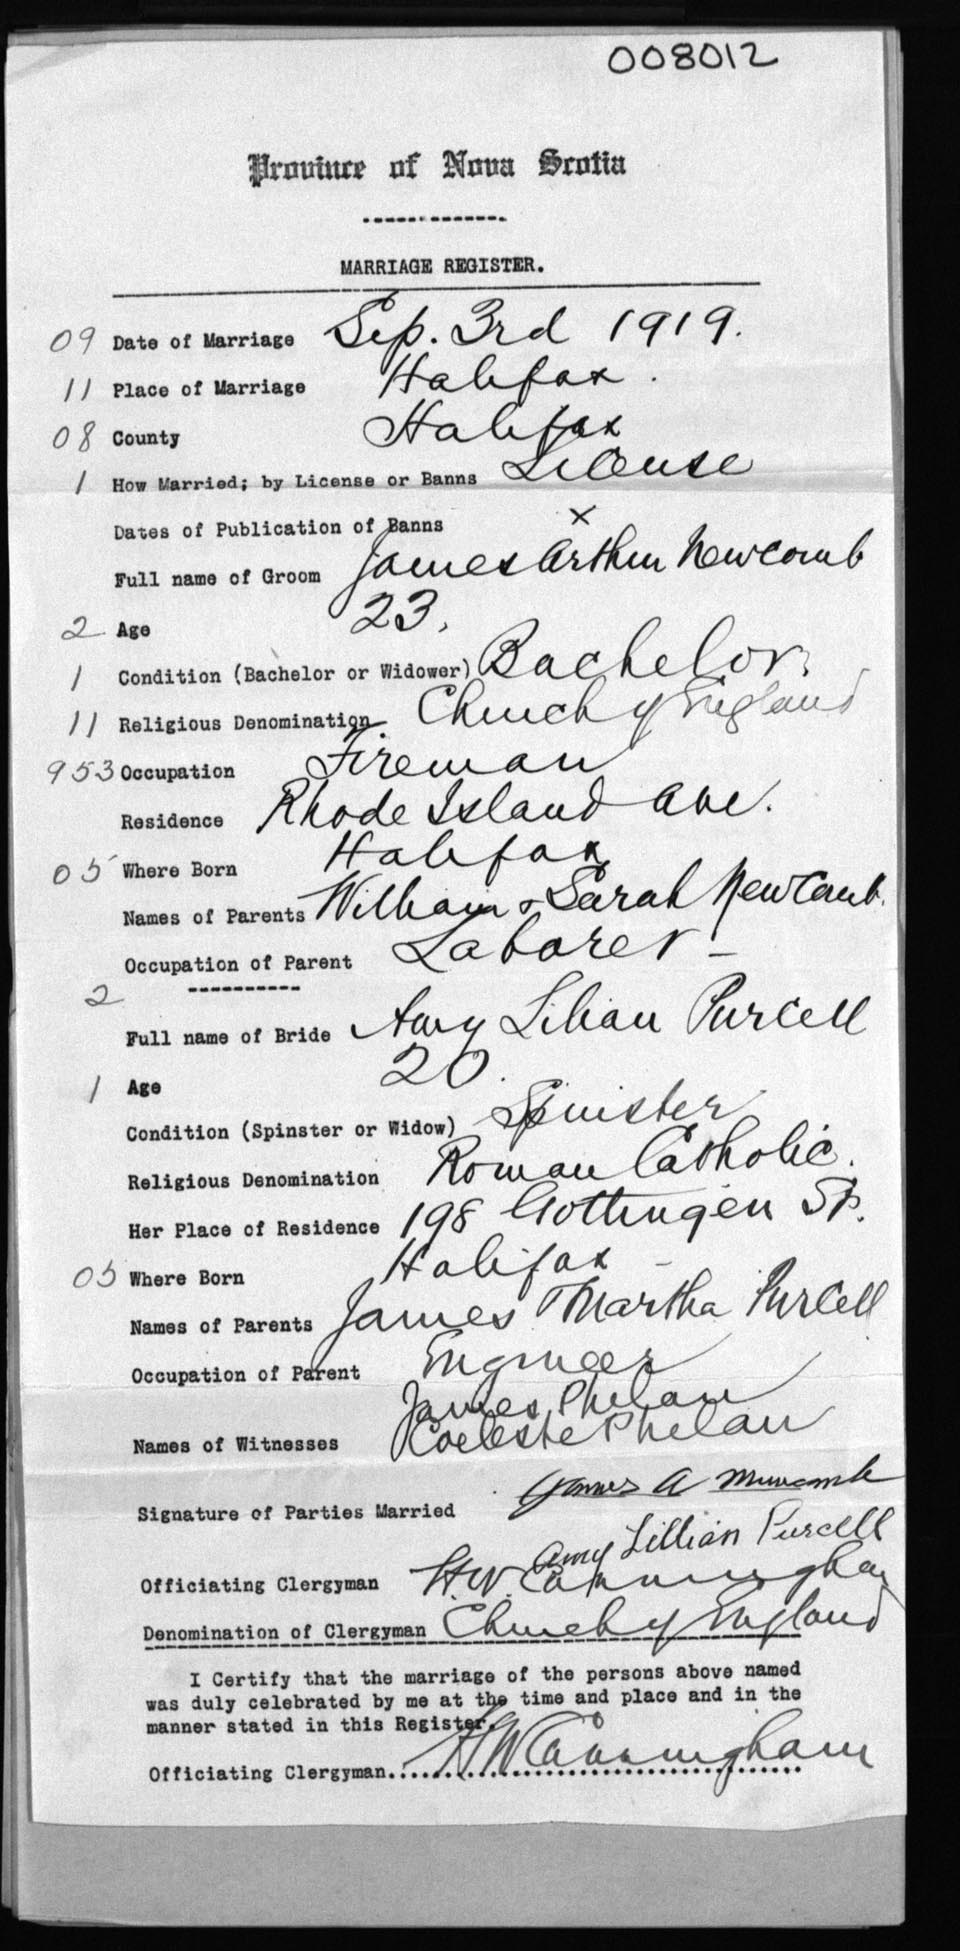 008012
Province of Nova Scotia
MARRIAGE REGISTER.
09 Date of Marriage Sep. 3rd 1919.
11 Place of Marriage Halifax.
08 County Halifax
1 How Married; by License or Banns License
Dates of Publication of Banns x
Full name of Groom James Arthur Newcomb
2 Age 23.
1 Condition (Bachelor or Widower) Bachelor.
11 Religious Denomination Church of England
953 Occupation Fireman
Residence Rhode Island Ave.
05 Where Born Halifax
Names of Parents William & Sarah Newcomb.
Occupation of Parent Laborer -
2
Full name of Bride Amy Lilian Purcell
1 Age 20.
Condition (Spinster or Widow) Spinster
Religious Denomination Roman Catholic.
Her Place of Residence 198 Gottingen St.
05 Where Born Halifax -
Names of Parents James Martha Purcell
Occupation of Parent Engineer
James Phelan
Names of Witnesses Coeleste Phelan
James A
Signature of Parties Married
Amy Lillian Purcell
Officiating Clergyman H.W. Cunningham
Denomination of Clergyman Church of England
I Certify that the marriage of the persons above named
was duly celebrated by me at the time and place and in the
manner stated in this Register.
Officiating Clergyman. HW Cunningham